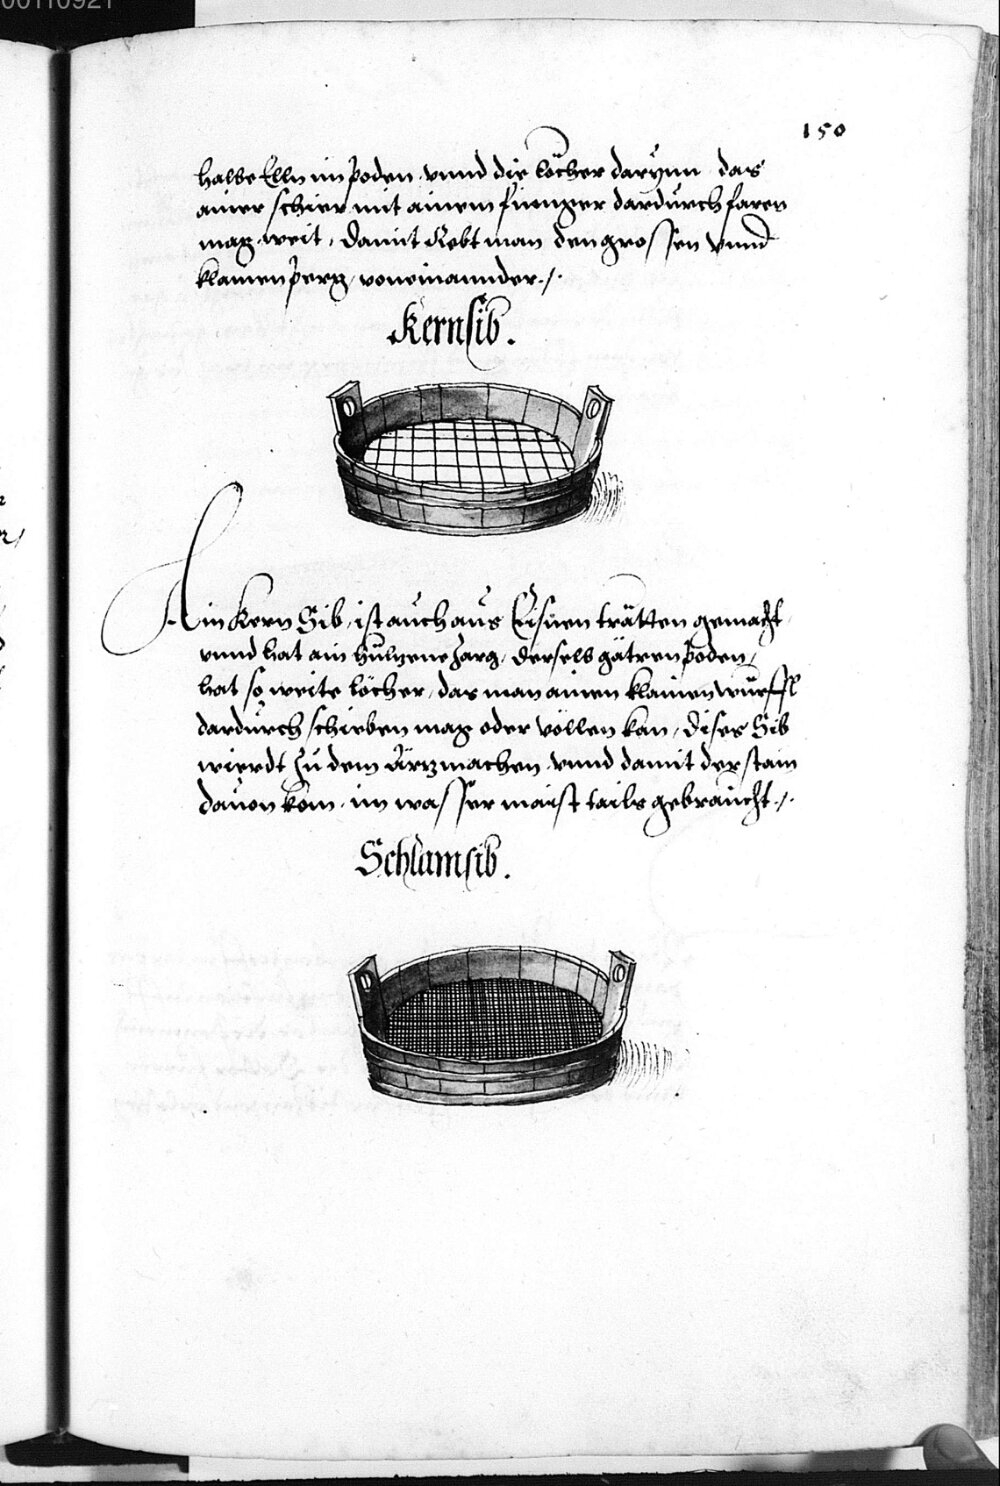 00110921
150
halbe Elln im poden vnnd die löcher darynn das
ainer schier mit ainem finnger dardurch faren
mag weit, damit Rebt man den grossen vnnd
klainen perg, voneinannder ./.
Kernsib.
Ain Kern Sib, ist auch aus Eisnen trätten gemacht,
vnnd hat ain hulzene zarg, derselb gätren poden,
hat so weite löcher, das man ainen klainen würffl
dardurch schieben mag oder völlen kan, dises Sib
wierdt zu dem Ärzmachen vnnd damit der stain
dauon kom, im wasser maist tails gebraucht ./.
Schlamsib.